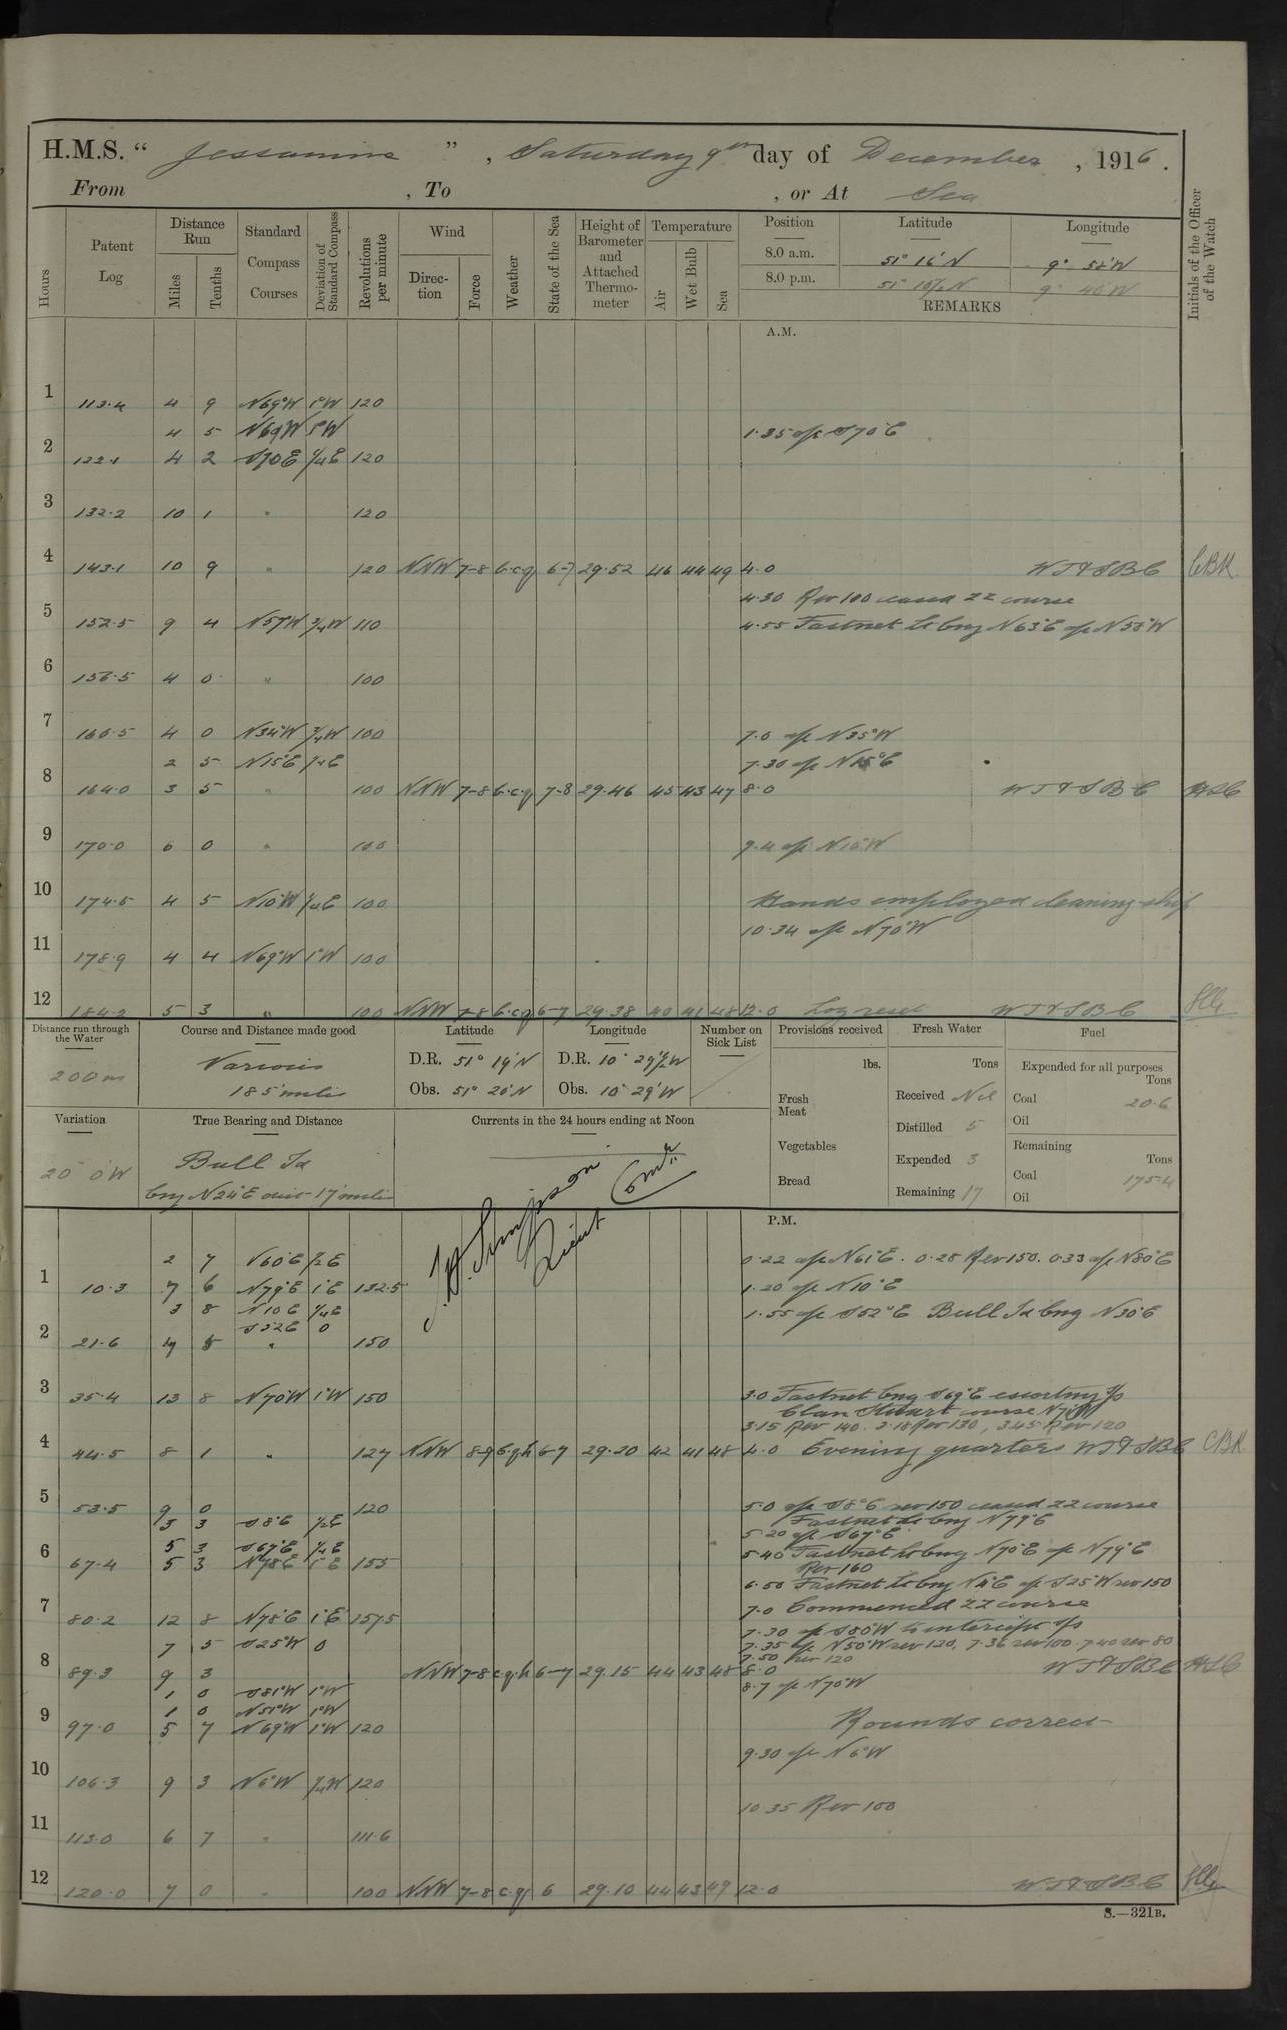 H.M.S. “ Jessamine ” , Saturday 9th day of December , 1916 .
From , To , or At Sea
Hours
Patent Log
Distance Run
Miles
Tenths
Standard Compass Courses
Deviation of Standard Compass
Revolutions per minute
Wind
Direction
Force
Weather
State of the Sea
Height of Barometer and Attached Thermometer
Temperature
Air
Wet Bulb
Sea
Position Latitude Longitude
8.0 a.m. 51° 16' N 9° 52' W
8.0 p.m. 9° 40' W
REMARKS
Initials of the Officer of the Watch
A.M.
1 113.4 4 9 N69°W 1°W 120
4 5 N69W 1°W 1.35 a/c S70°E
2 122.1 4 2 S70E ¼E 120
3 132.2 10 1 " 120
4 143.1 10 9 " 120 NNW 7-8 b.c.q 6-7 29.52 46 44 49 4.0 WT&SBC CBK
4.30 Rev 100 ceased ZZ course
5 152.5 9 4 N57W ¾W 110 4.55 Fastnet Lt brg N63°E a/c N55°W
6 156.5 4 0 " 100
7 160.5 4 0 N34°W ¾W 100 7.0 a/c N35°W
2 5 N15°E ½E 7.30 a/c N15°E
8 164.0 3 5 " 100 NNW 7-8 b.c.q 7-8 29.46 45 43 47 8.0 WT&SBC
9 170.0 6 0 " 100 9.4 a/c N10°W
10 174.5 4 5 N10°W ¼E 100 Hands employed cleaning ship
10.34 a/c N70°W
11 178.9 4 4 N69°W 1°W 100
12 184.2 5 3 " 100 NNW 7-8 b.c.q 6-7 29.38 40 41 48 12.0 Log reset WT&SBC
Distance run through the Water
200 m
Course and Distance made good
Various
185 miles
Latitude Longitude
D.R. 51° 19' N D.R. 10° 29½' W
Obs. 51° 20' N Obs. 10° 29' W
Number on Sick List
Provisions received
lbs.
Fresh Meat
Vegetables
Bread
Fresh Water
Tons
Received Nil
Distilled 5
Expended 3
Remaining 17
Fuel
Expended for all purposes
Tons
Coal 20.6
Oil
Remaining
Tons
Coal 175.4
Oil
Variation
20° 0' W
True Bearing and Distance
Bull Id
brg N24°E dist 17 miles
Currents in the 24 hours ending at Noon
Simpson
Lieut Comdr
P.M.
2 7 N60°E ½E 0.22 a/c N61°E . 0.28 Rev 150. 0.33 a/c N80°E
1 10.3 7 6 N79°E 1°E 132.5 1.20 a/c N10°E
3 8 N10E ¼E 1.55 a/c S52°E Bull Id brg N30°E
S52E 0
2 21.6 " 150
3 35.4 13 8 N70W 1°W 150 3.0 Fastnet brg S69°E escorting S/S
Clan Stuart course N71W
3.15 Rev 140. 3.18 Rev 130, 3.45 Rev 120
4 44.5 8 1 " 127 NNW 8-9 6-7 29.20 42 41 48 4.0 Evening quarters WT&SBC CBK
5 53.5 9 0 120 5.0 a/c S8°E rev 150 ceased ZZ course
3 3 S8°E ½E Fastnet Lt brg N79°E
5 3 S67°E ¼E 5.20 a/c S67°E
6 67.4 5 3 N78E 1°E 155 5.40 Fastnet Lt brg N70°E a/c N79°E
Rev 160
6.50 Fastnet Lt brg a/c S25°W rev 150
7 80.2 12 8 N78°E 1°E 157.5 7.0 Commenced ZZ course
7.30 a/c S80°W to intercept S/S
7 5 S25°W 0 7.35 a/c N50°W rev 120, 7.36 rev 100. 7.40 rev 80
7.50 rev 120
8 89.3 9 3 NNW 7-8 6-7 29.15 44 43 48 8.0 WT&SBC
1 0 S81°W 1°W 8.7 a/c N70°W
1 0 N51°W 1°W
9 97.0 5 7 N69°W 1°W 120 Rounds correct
9.30 a/c N6°W
10 106.3 9 3 N6°W ¼W 120
10.35 Rev 100
11 113.0 6 7 " 111.6
12 120.0 7 0 " 100 NNW 7-8 c.q 6 29.10 44 43 49 12.0 WT&SBC
S.—321B.